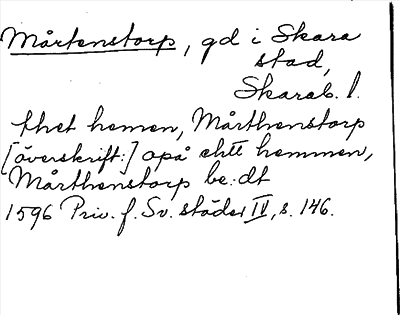 Mårtenstorp, gd i Skara
stad,
Skarab. l.
thet hemen, Mårthenstorp
[överskrift:] opå ehtt hemmen,
Mårthenstorp be:dt
1596 Priv. f. Sv. städer IV, s. 146.